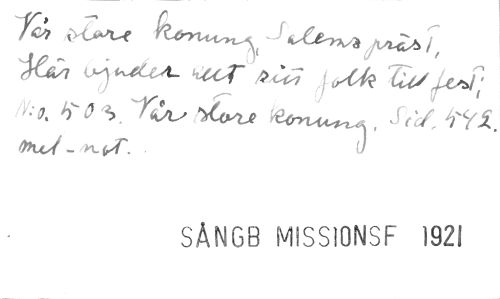 Vår store konung, Salems präst,
Här bjuder allt sitt folk till fest;
N:o. 503. Vår store konung. Sid. 542.
mel-not.
SÅNGB MISSIONSF 1921